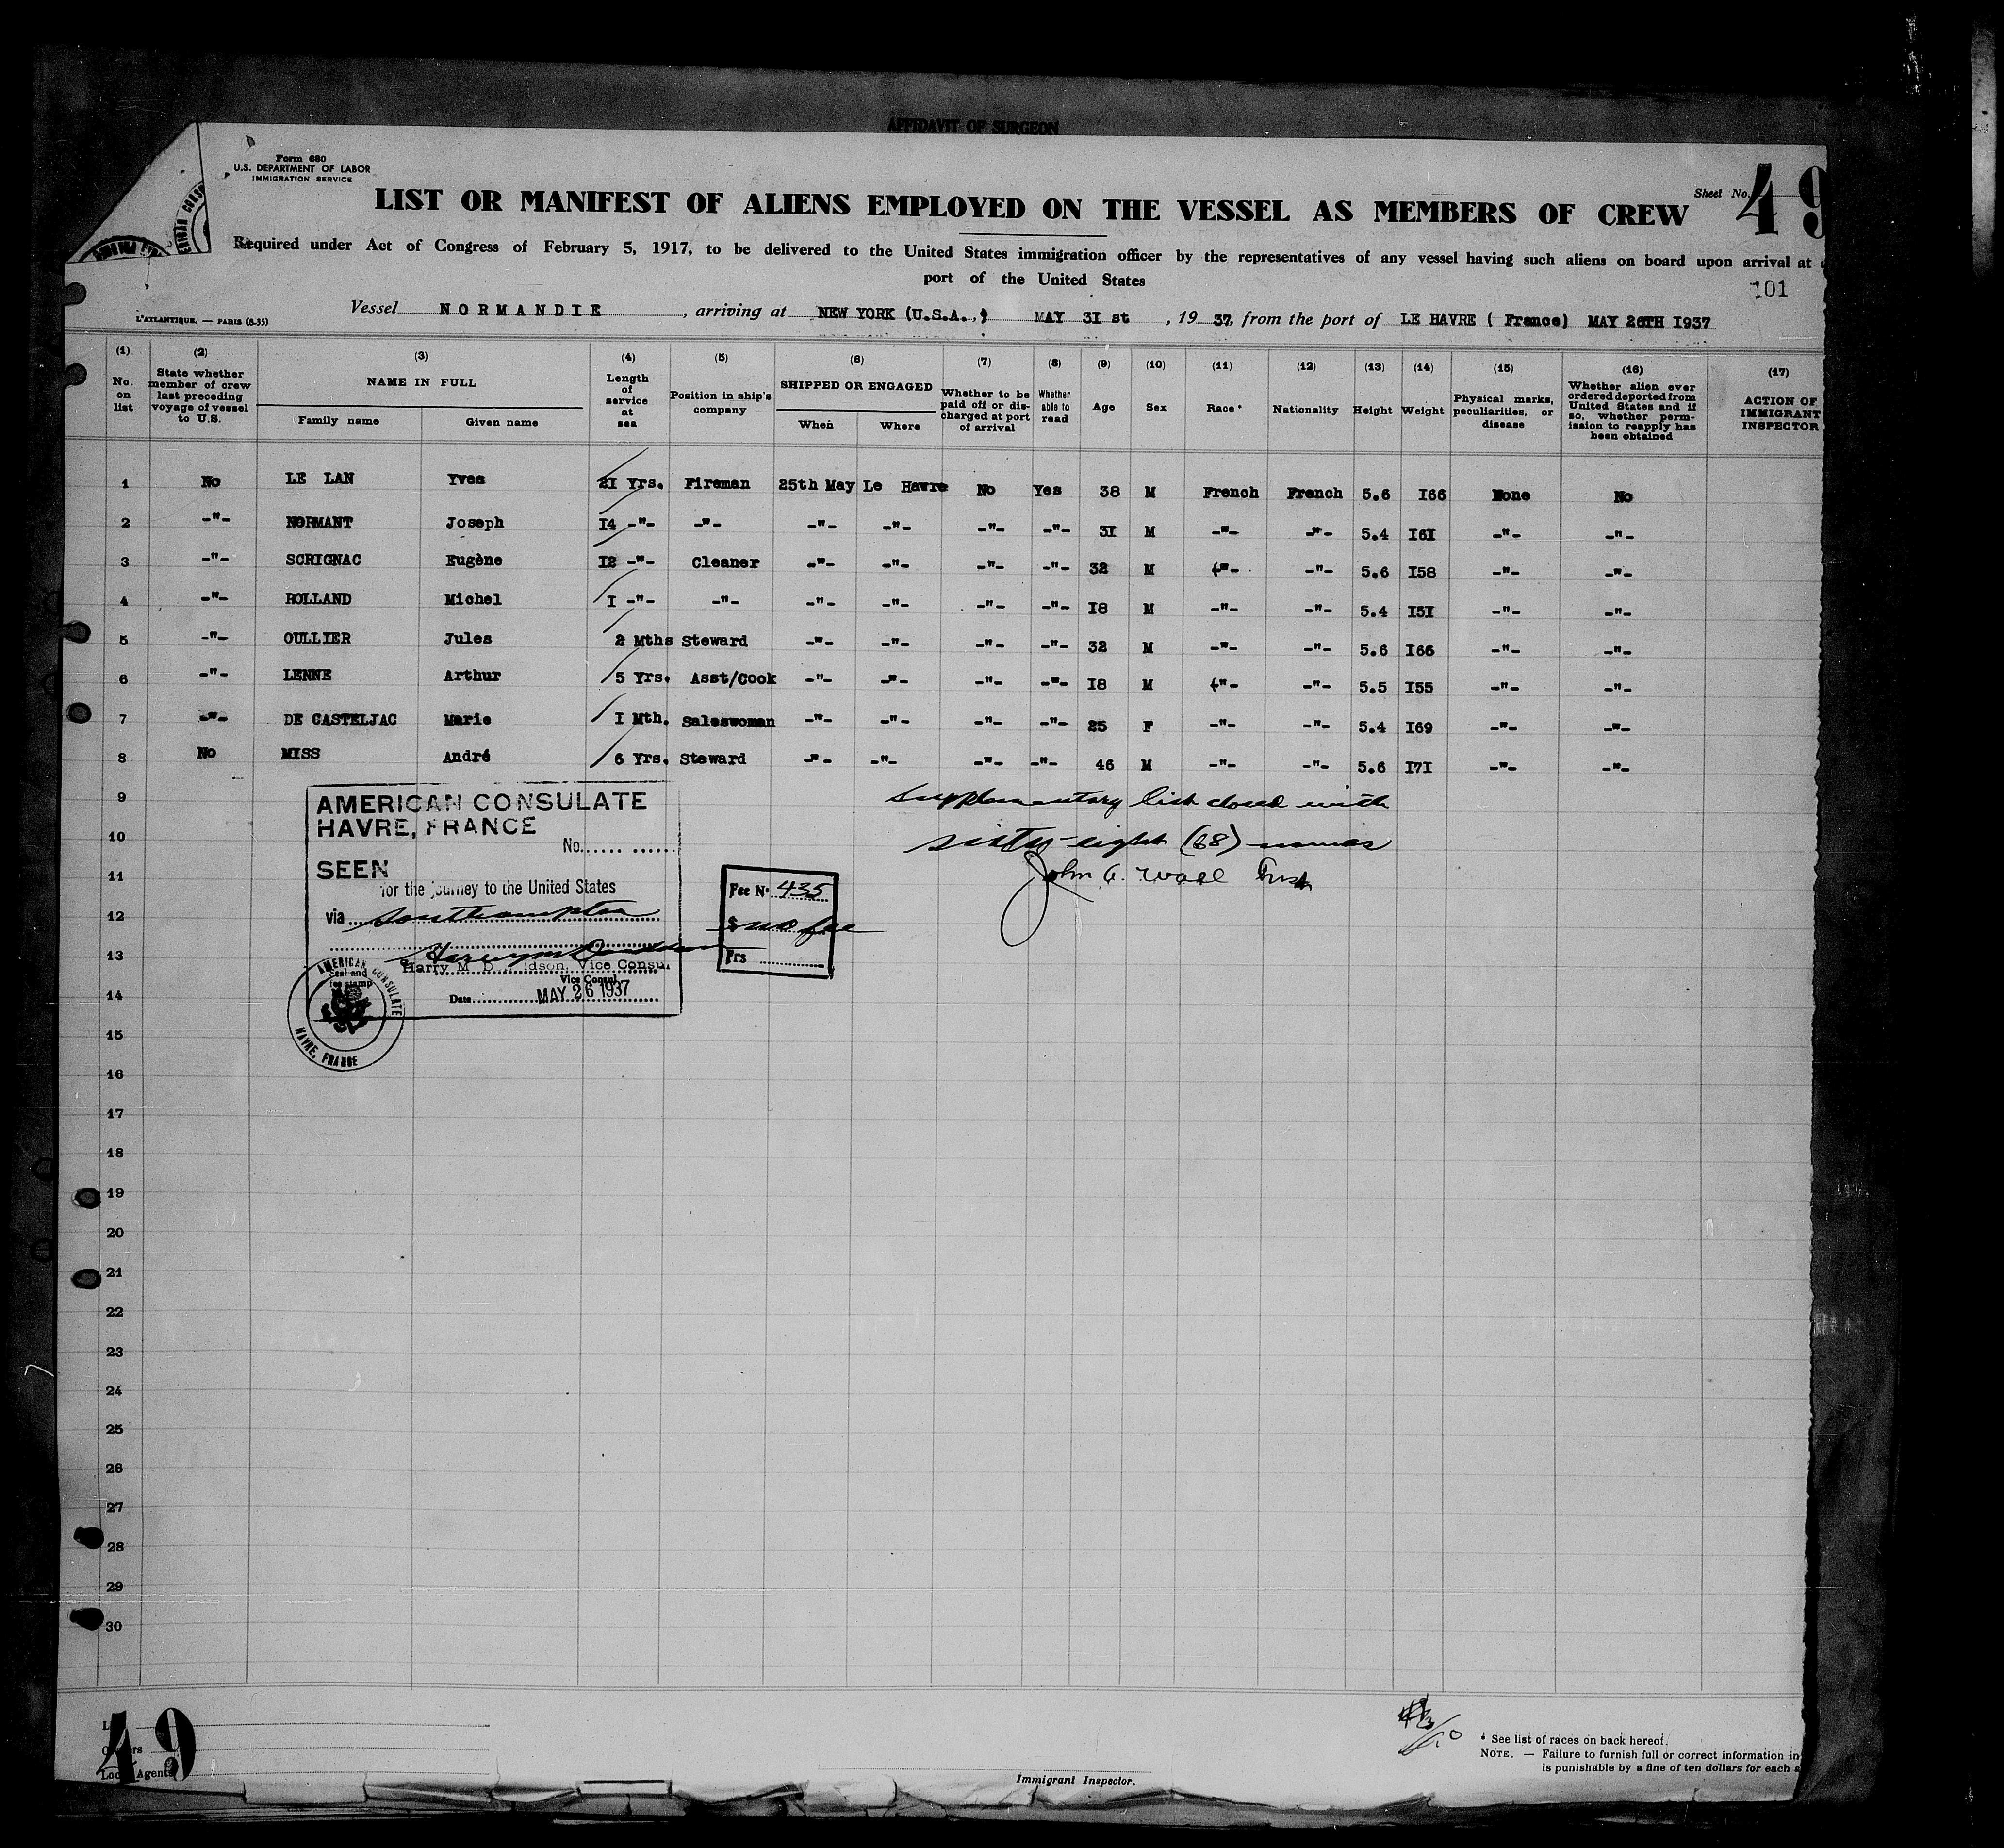 AFFIDAVIT OF SURGEON
Form 680
U.S. DEPARTMENT OF LABOR
IMMIGRATION SERVICE
Sheet No. 49
LIST OR MANIFEST OF ALIENS EMPLOYED ON THE VESSEL AS MEMBERS OF CREW
Required under Act of Congress of February 5, 1917, to be delivered to the United States immigration officer by the representatives of any vessel having such aliens on board upon arrival at
port of the United States
101
L'ATLANTIQUE. — PARIS (8-35)
Vessel NORMANDIE, arriving at NEW YORK (U.S.A.,) MAY 3I st, 19 37, from the port of LE HAVRE ( France) MAY 26TH I937
(1) (2) (3) (4) (5) (6) (7) (8) (9) (10) (11) (12) (13) (14) (15) (16) (17)
No. on list
State whether member of crew last preceding voyage of vessel to U.S.
NAME IN FULL
Family name
Given name
Length of service at sea
Position in ship's company
SHIPPED OR ENGAGED
When
Where
Whether to be paid off or discharged at port of arrival
Whether able to read
Age
Sex
Race *
Nationality
Height
Weight
Physical marks, peculiarities, or disease
Whether alien ever ordered deported from United States and if so, whether permission to reapply has been obtained
ACTION OF IMMIGRANT INSPECTOR
1 No LE LAN Yves 2I Yrs. Fireman 25th May Le Havre No Yes 38 M French French 5.6 I66 None No
2 -"- NORMANT Joseph I4 -"- -"- -"- -"- -"- -"- 3I M -"- -"- 5.4 I6I -"- -"-
3 -"- SCRIGNAC Eugène I2 -"- Cleaner -"- -"- -"- -"- 32 M -"- -"- 5.6 I58 -"- -"-
4 -"- ROLLAND Michel I -"- -"- -"- -"- -"- -"- I8 M -"- -"- 5.4 I5I -"- -"-
5 -"- OULLIER Jules 2 Mths Steward -"- -"- -"- -"- 32 M -"- -"- 5.6 I66 -"- -"-
6 -"- LENNE Arthur 5 Yrs. Asst/Cook -"- -"- -"- -"- I8 M -"- -"- 5.5 I55 -"- -"-
7 -"- DE CASTELJAC Marie I Mth. Saleswoman -"- -"- -"- -"- 25 F -"- -"- 5.4 I69 -"- -"-
8 No MISS André 6 Yrs. Steward -"- -"- -"- -"- 46 M -"- -"- 5.6 I7I -"- -"-
9
10
11
12
13
14
15
16
17
18
19
20
21
22
23
24
25
26
27
28
29
30
supplementary list closed with
sixty-eight (68) names
John A. Wall
AMERICAN CONSULATE
HAVRE, FRANCE
No.
SEEN
for the journey to the United States
via Southampton
Harry M. Vice Consul
Vice Consul
Date MAY 26 1937
Seal and fee stamp
AMERICAN CONSULATE
HAVRE, FRANCE
Fee No. 435
$ no fee
Frs
49
Local Agents
Immigrant Inspector.
* See list of races on back hereof.
NOTE. — Failure to furnish full or correct information in
is punishable by a fine of ten dollars for each a